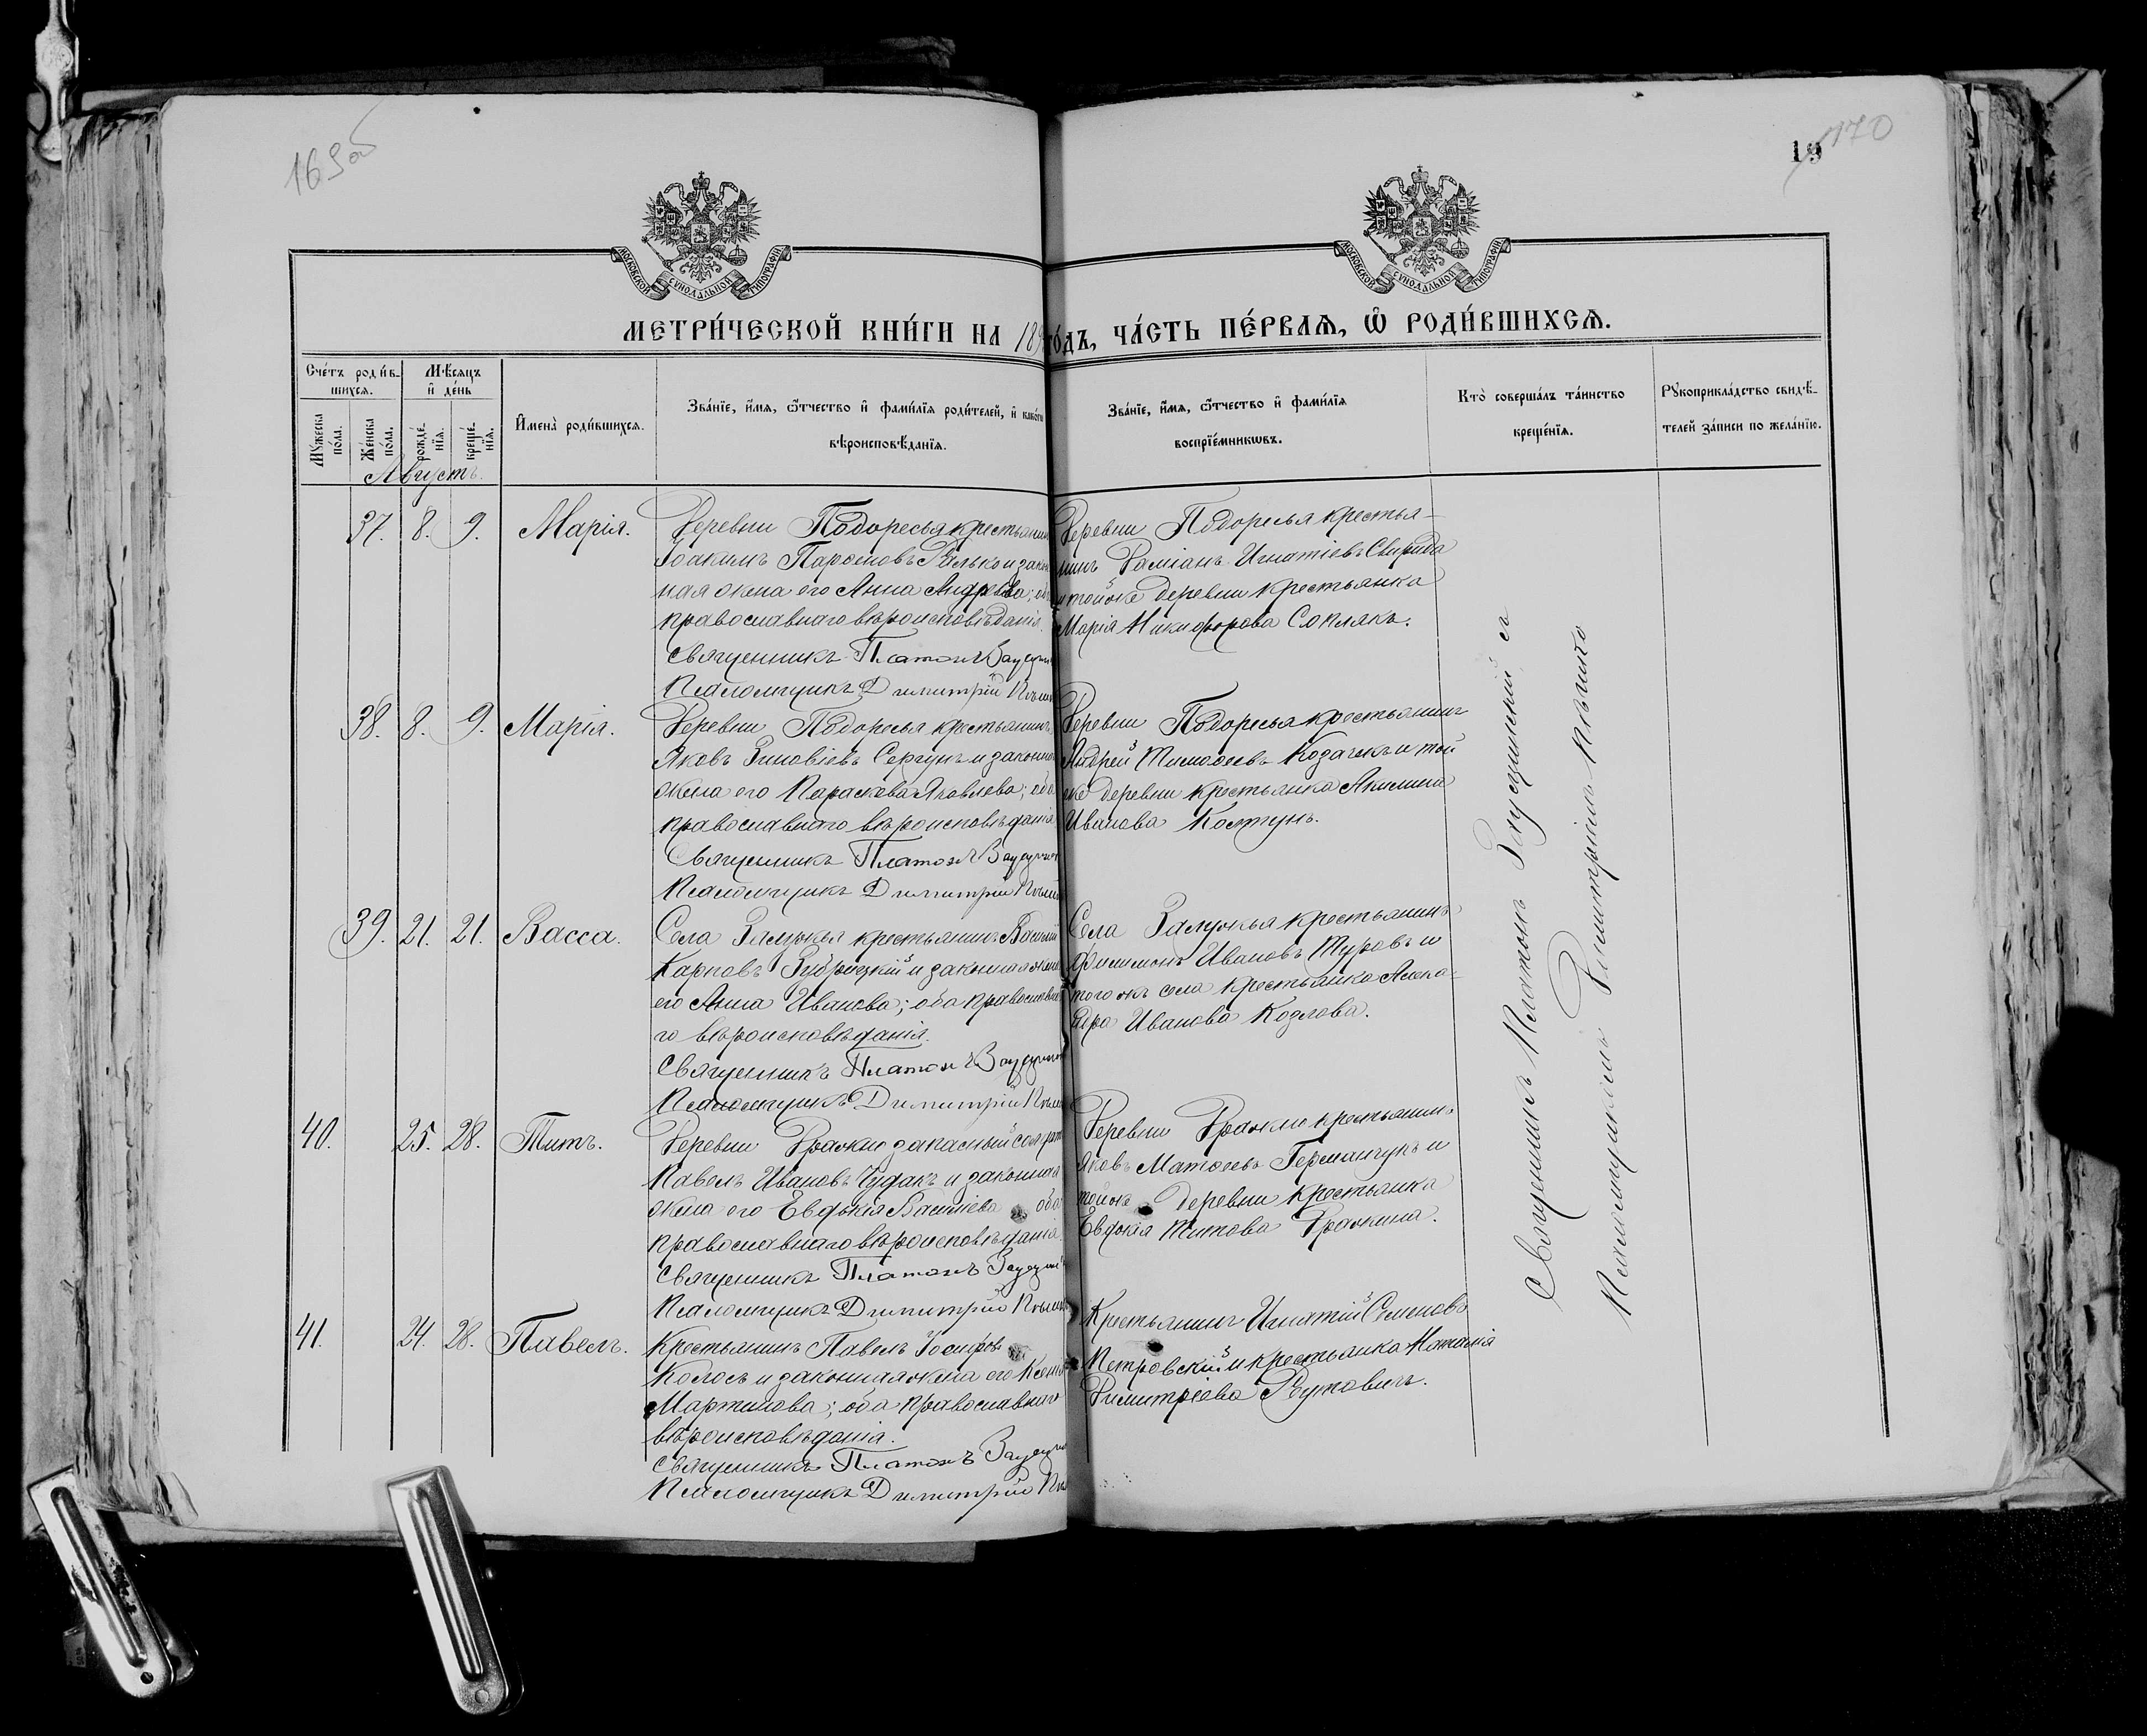 169об
170
19
МОСКОВСКОЙ СѴНОДАЛЬНОЙ ТИПОГРАФІИ
МОСКОВСКОЙ СѴНОДАЛЬНОЙ ТИПОГРАФІИ
МЕТРИ́ЧЕСКОЙ КНИ́ГИ НА 189 ГО́ДЪ, ЧА́СТЬ ПЕ́РВАѦ, Ѡ҆ РОДИ́ВШИХСѦ.
Сче́тъ роди́в-
шихсѧ.
Мѣ́сѧцъ
и҆ де́нь
Мꙋ́жеска
по́ла.
Же́нска
по́ла.
рожде́-
нїѧ.
креще́-
нїѧ.
И҆мена̀ роди́вшихсѧ.
Зва́нїе, и҆́мѧ, ѻ҆́тчество и҆ фами́лїѧ роди́телей, и҆ како́гѡ
вѣроисповѣ́данїѧ.
Зва́нїе, и҆́мѧ, ѻ҆́тчество и҆ фами́лїѧ
воспрїе́мникѡвъ.
Кто̀ соверша́лъ та́инство
креще́нїѧ.
Рꙋкоприкла́дство свидѣ́-
телей за́писи по жела́нїю.
Августъ.
37. 8. 9. Марія.
Деревни Подоресья крестьянинъ
Іоакимъ Парѳеновъ и закон
ная жена его Анна Андреева; оба
православнаго вѣроисповѣданія.
Священникъ Платонъ
Псаломщикъ Димитрій
Деревни Подоресья крестья-
нинъ Даміанъ Игнатіевъ Свирида
и тойже деревни крестьянка
Марія Никифорова Сопляк.
38. 8. 9. Марія.
Деревни Подоресья крестьянинъ
Яковъ Зиновіевъ Сергунъ и законная
жена его Параскева Яковлева; оба
православнаго вѣроисповѣданія
Священникъ Платонъ
Псаломщикъ Димитрій
Деревни Подоресья крестьянинъ
Андрей Тимоѳеевъ Козачекъ и той
же деревни крестьянка Акилина
Иванова Колтунъ.
39. 21. 21. Васса.
Села Залужья крестьянинъ Василій
Карповъ и законная жена
его Анна Иванова; оба православна
го вѣроисповѣданія.
Священникъ Платонъ
Псаломщикъ Димитрій
Села Залужья крестьянинъ
Филимонъ Ивановъ Туровъ и
того жъ села крестьянка Алекса-
ндра Иванова Козлова.
40. 25. 28. Титъ.
Деревни Дражно запасный солдатъ
Павелъ Ивановъ Чудакъ и законная
жена его Евдокія Василіева оба
православнаго вѣроисповѣданія
Священникъ Платонъ
Псаломщикъ Димитрій
Деревни Дражно крестьянинъ
Яковъ Матѳеевъ Германчукъ и
тойже деревни крестьянка
Евдокія Титова Дражина.
41. 24. 28. Павелъ.
Крестьянинъ Павелъ Іосифовъ
Колосъ и законная жена его Ксенія
Мартинова; оба православнаго
вѣроисповѣданія.
Священникъ Платонъ
Псаломщикъ Димитрій
Крестьянинъ Игнатій Семеновъ
Петровскій и крестьянка Наталія
Димитріева Рутовичъ.
Священникъ Платонъ съ
Псаломщикомъ Димитріемъ